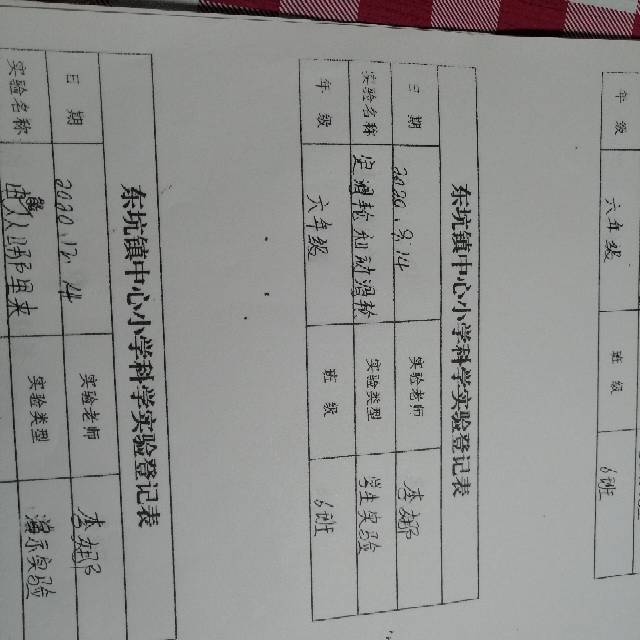 年 级 六年级 班 级 6班
东坑镇中心小学科学实验登记表
日 期 2020.9.14 实验老师 李娜
实验名称 定滑轮和动滑轮 实验类型 学生实验
年 级 六年级 班 级 6班
东坑镇中心小学科学实验登记表
日 期 2020.12.14 实验老师 李娜
实验名称 从哪里来 实验类型 演示实验